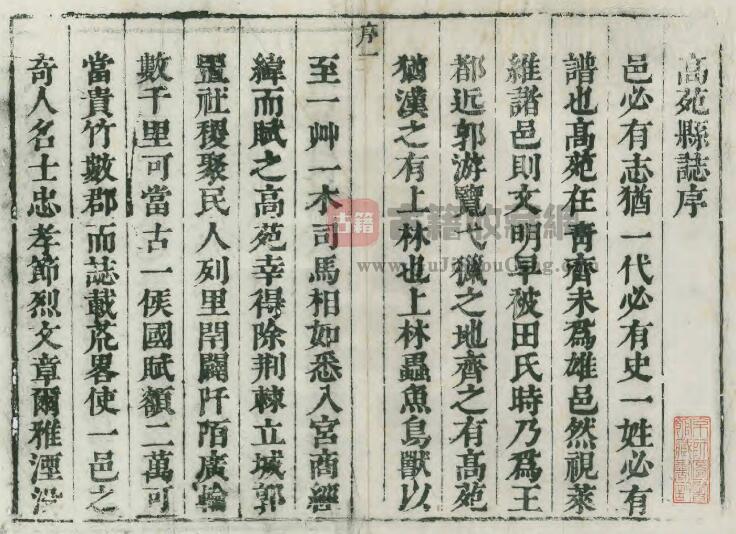 高苑縣誌序
邑必有志猶一代必有史一姓必有
譜也高苑在青齊未爲雄邑然視萊
維諸邑則文明早被田氏時乃爲王
都近郭游覽弋獵之地齊之有高苑
猶漢之有上林也上林蟲魚鳥獸以
序一
至一艸一木司馬相如悉入宮商經
緯而賦之高苑幸得除荆棘立城郭
置社稷聚民人列里閈闢阡陌廣輪
數千里可當古一侯國賦額二萬可
當貴竹數郡而誌載荒畧使一邑之
奇人名士忠孝節烈文章爾雅湮沒
古籍
古籍收藏網